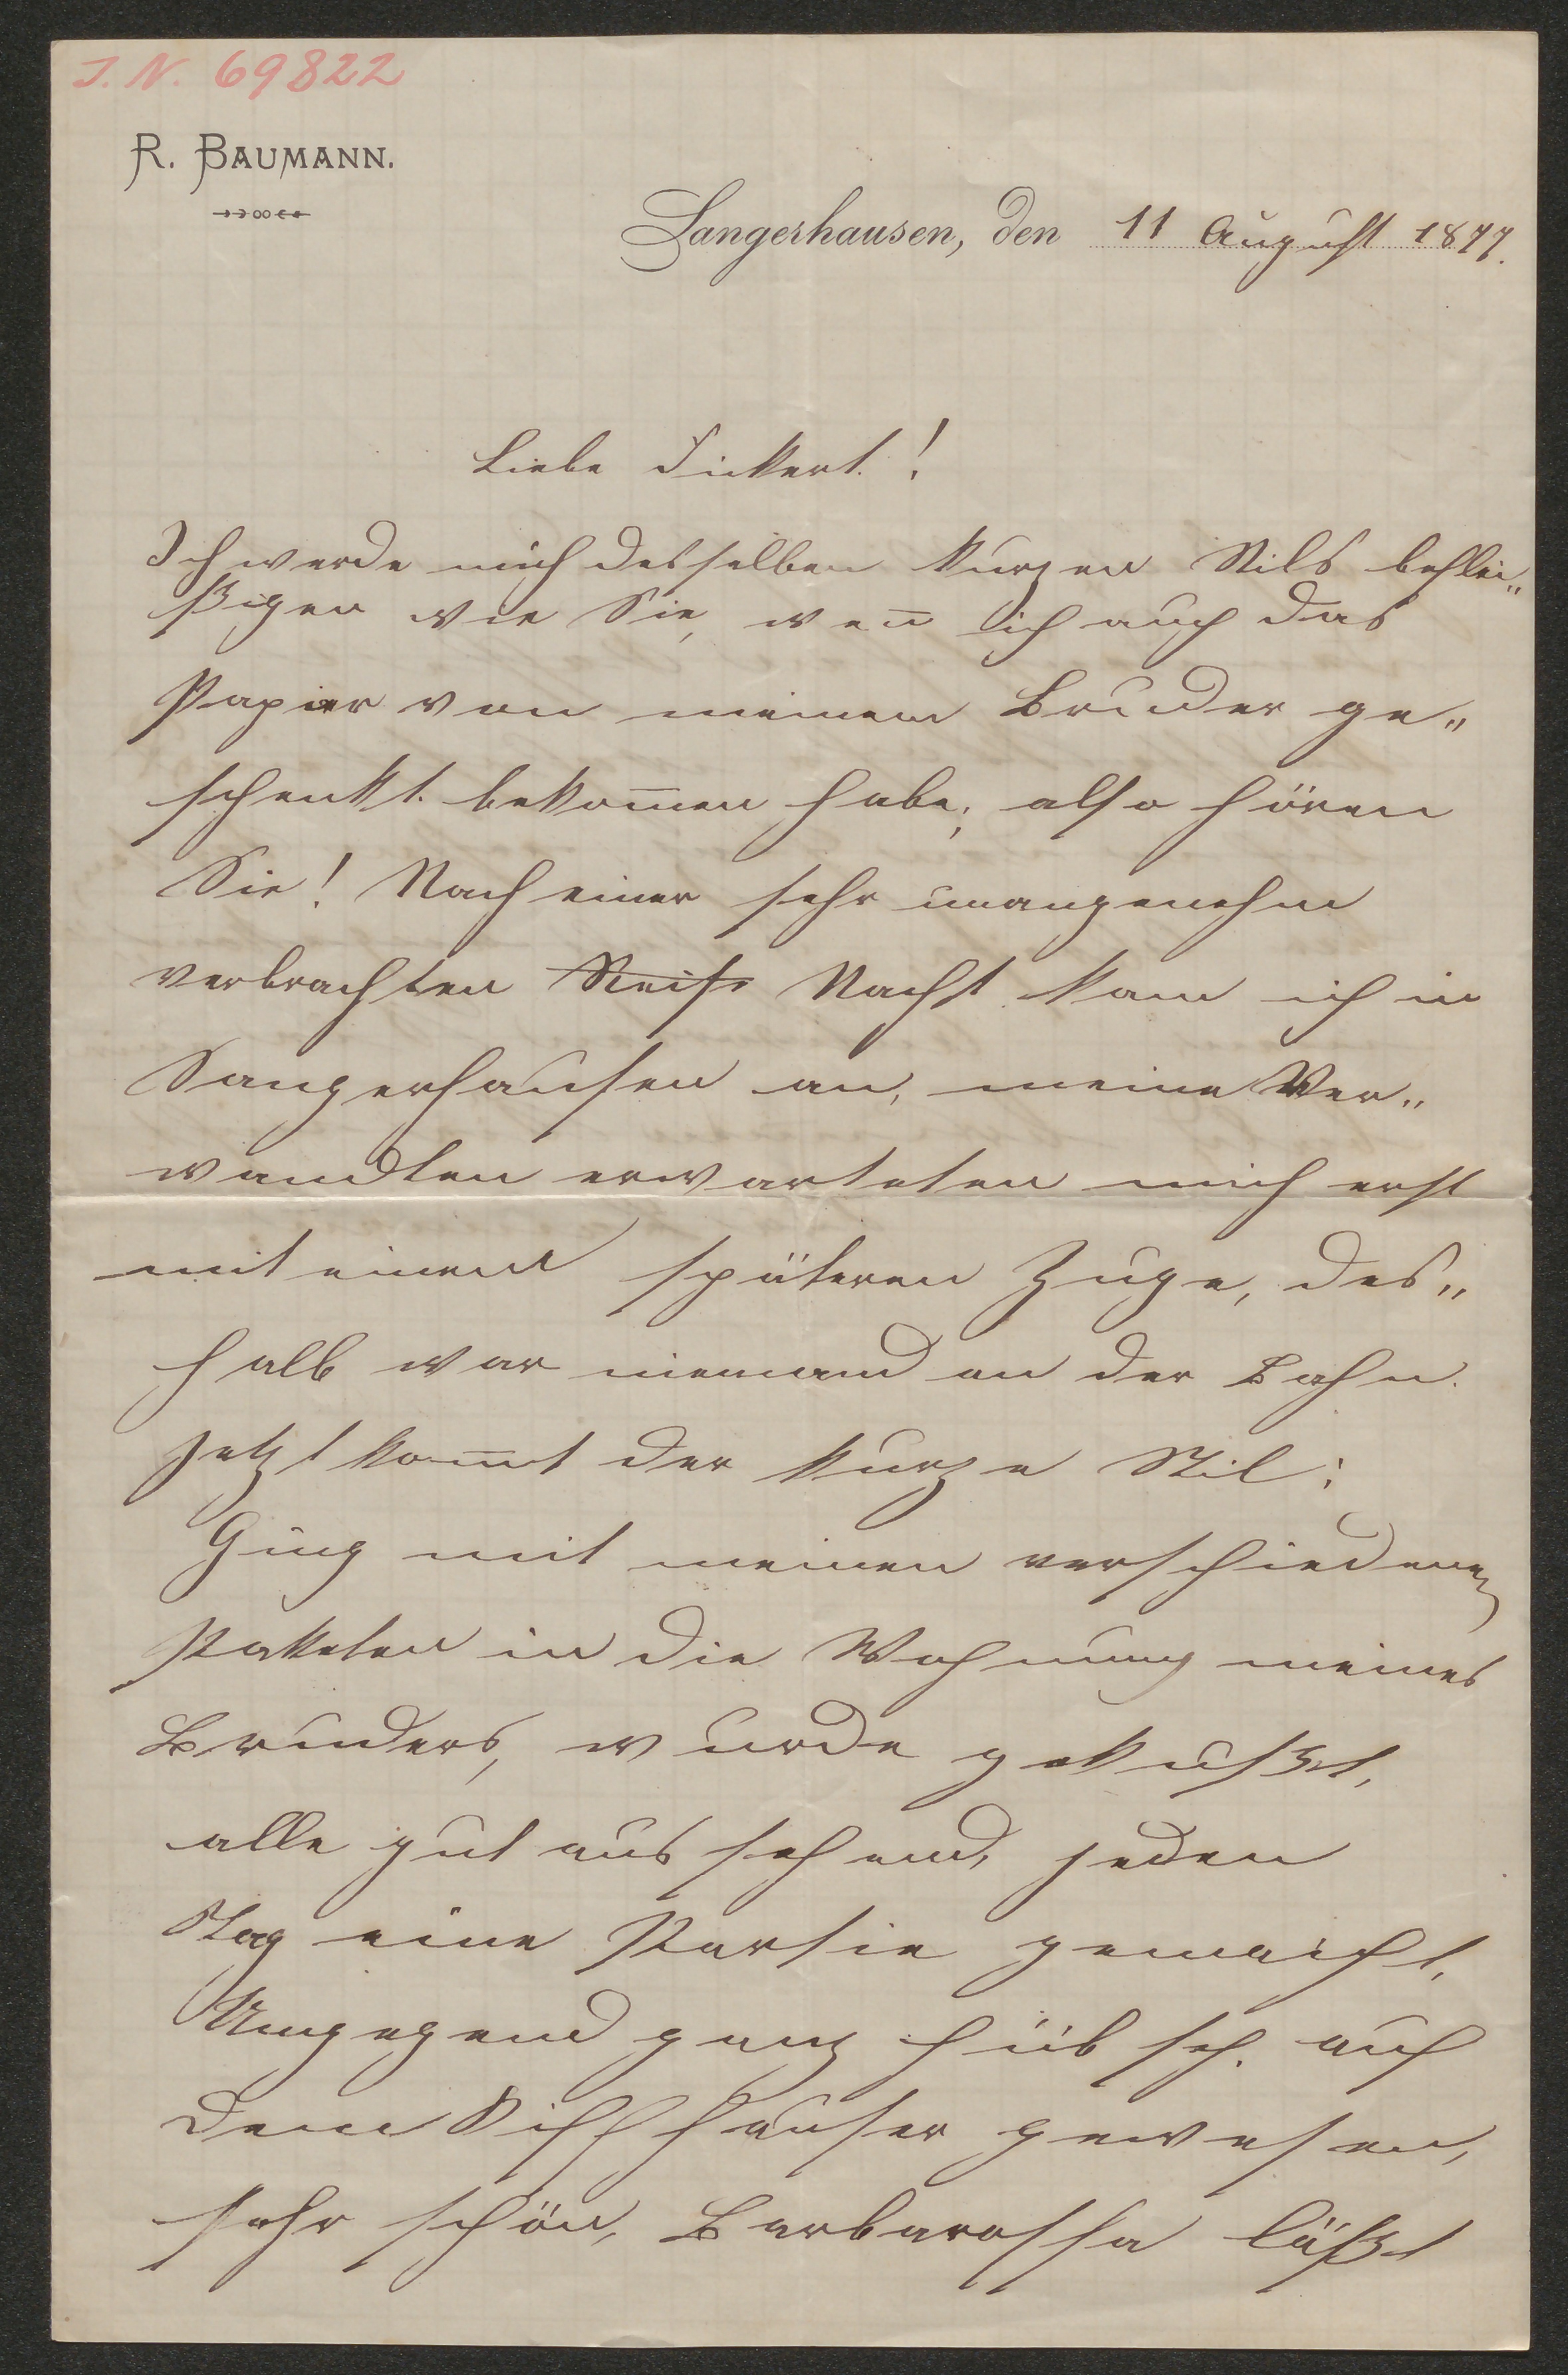 J. N. 69822
R. BAUMANN.
Sangerhausen, den 11 August 1877.
Liebe Fickert!
Ich werde mich desselben kurzen Stils beflei„
ßigen wie Sie, weñ ich auch das
Papier von meinem Bruder ge„
schenkt bekom̄en habe; also hören
Sie! Nach einer sehr unangenehm
verbrachten Reise Nacht kam ich in
Sangerhausen an, meine Ver„
wandten erwarteten mich erst
mit einem späteren Zuge, des„
halb war niemand an der Bahn.
Jetzt kom̄t der kurze Stil:
Ging mit meinen verschiedenen
Paketen in die Wohnung meines
Bruders, wurde geküßt,
alle gut aussehend, jeden
Tag eine Partie gemacht,
Umgegend ganz hübsch. auf
dem Kiffhäuser gewesen,
sehr schön, Barbarossa läßt